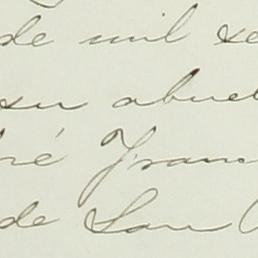 de mil se
su abuel
ré Fran
de San